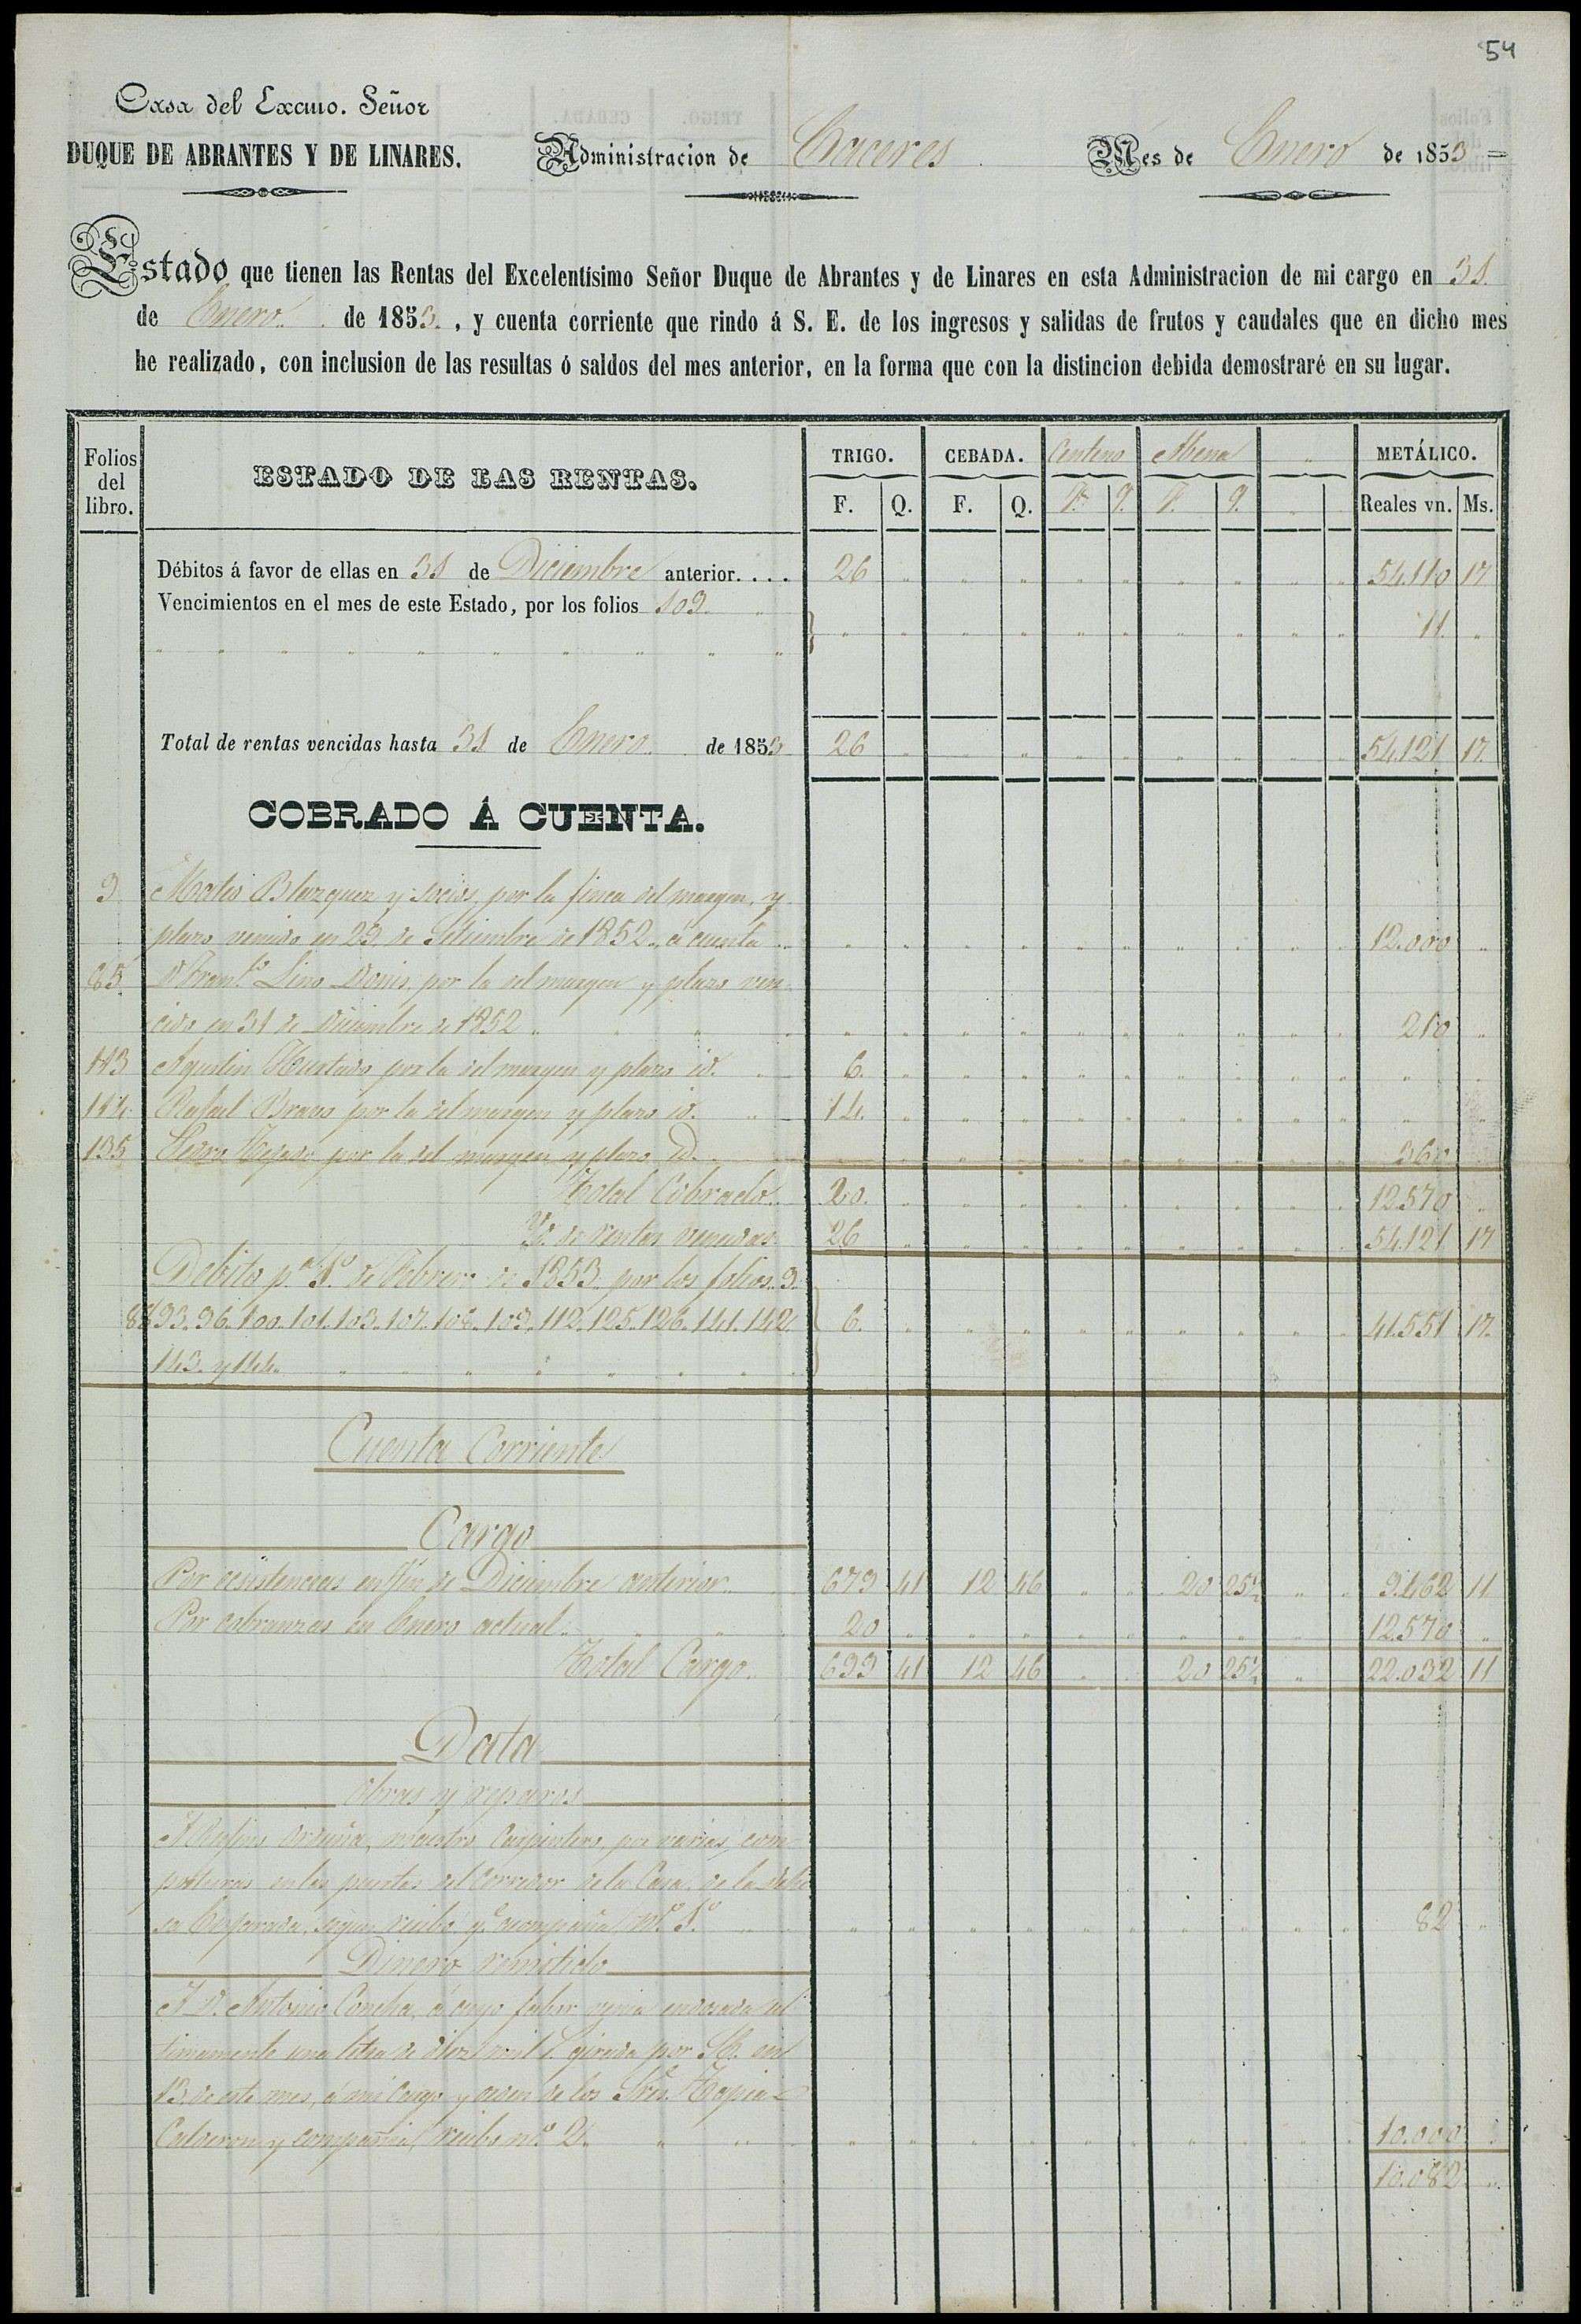 54
Casa del Excmo. Señor
DUQUE DE ABRANTES Y DE LINARES.
Administracion de Caceres
Mes de Enero de 1853 =
Estado que tienen las Rentas del Excelentísimo Señor Duque de Abrantes y de Linares en esta Administracion de mi cargo en 31
de Enero de 1853, y cuenta corriente que rindo á S. E. de los ingresos y salidas de frutos y caudales que en dicho mes
he realizado, con inclusion de las resultas ó saldos del mes anterior, en la forma que con la distincion debida demostraré en su lugar.
Folios del libro. ESTADO DE LAS RENTAS. TRIGO. CEBADA. Centeno Abena METÁLICO.
F. Q. F. Q. F. Q. F. Q. Reales vn. Ms.
Débitos á favor de ellas en 31 de Diciembre anterior.... 26 54.110 17
Vencimientos en el mes de este Estado, por los folios 109. 11
Total de rentas vencidas hasta 31 de Enero de 1853 26 54.121 17.
COBRADO Á CUENTA.
9 Mateo Blazquez y socios, por la finca del margen, y
plazo vencido en 29 de Setiembre de 1852 a cuenta 12.000
85. D. Franco. Lino Donis, por la del margen y plazo ven
cido en 31 de Diciembre de 1852 210
113 Agustin Hurtado por la del margen y plazo id. 6.
114 Rafael Bravo por la del margen y plazo id. 14.
135 por la del margen y plazo id. 360
Total Cobrado. 20. 12.570
Yd. de rentas vencidas. 26 54.121 17
Debito pa. 1o. de Febrero de 1853 por los folios. 9.
88 93. 96. 100. 101. 103. 107. 108. 109. 112. 125. 126. 141. 142. 6. 41.551 17.
143. y 144.
Cuenta Corriente
Cargo
Por existencias en fin de Diciembre anterior. 679 41 12 46 20 25½ 9.462 11
Por cobranzas en Enero actual. 20 12.570
Total Cargo. 699 41 12 46 20 25½ 22.032 11
Data
Obras y reparos
A maestro Carpintero, por varias com
posturas en las puertas del Corredor de la Casa de la dehe
sa según recibo qe. acompaña no. 1o. 82
Dinero remitido
A D. Antonio Concha, á cuyo fabor venia endosada ul
timamente una letra de diez mil rs. girada por SE. en
13. de este mes, á mi cargo y orden de los Sres. Tapia
Calderon y compañia, recibo no. 2. 10.000
10.082